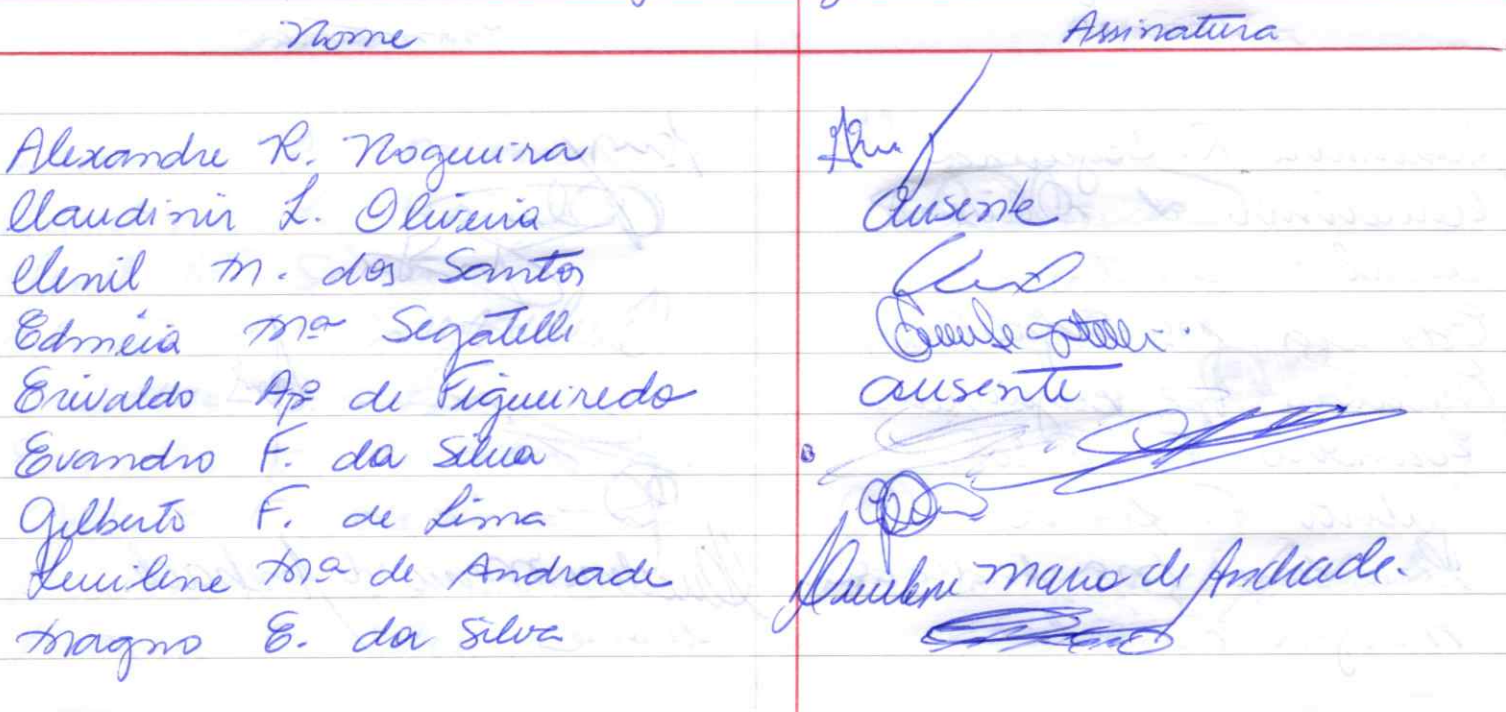 Nome Assinatura
Alexandre R. Nogueira
Claudinir L. Oliveira Ausente
Clenil M. dos Santos
Edméia Mª Segatelli
Erivaldo Apº de Figueiredo ausente
Evandro F. da Silva
Gilberto F. de Lima
Lucilene Mª de Andrade Lucilene Maria de Andrade.
Magno E. da Silva